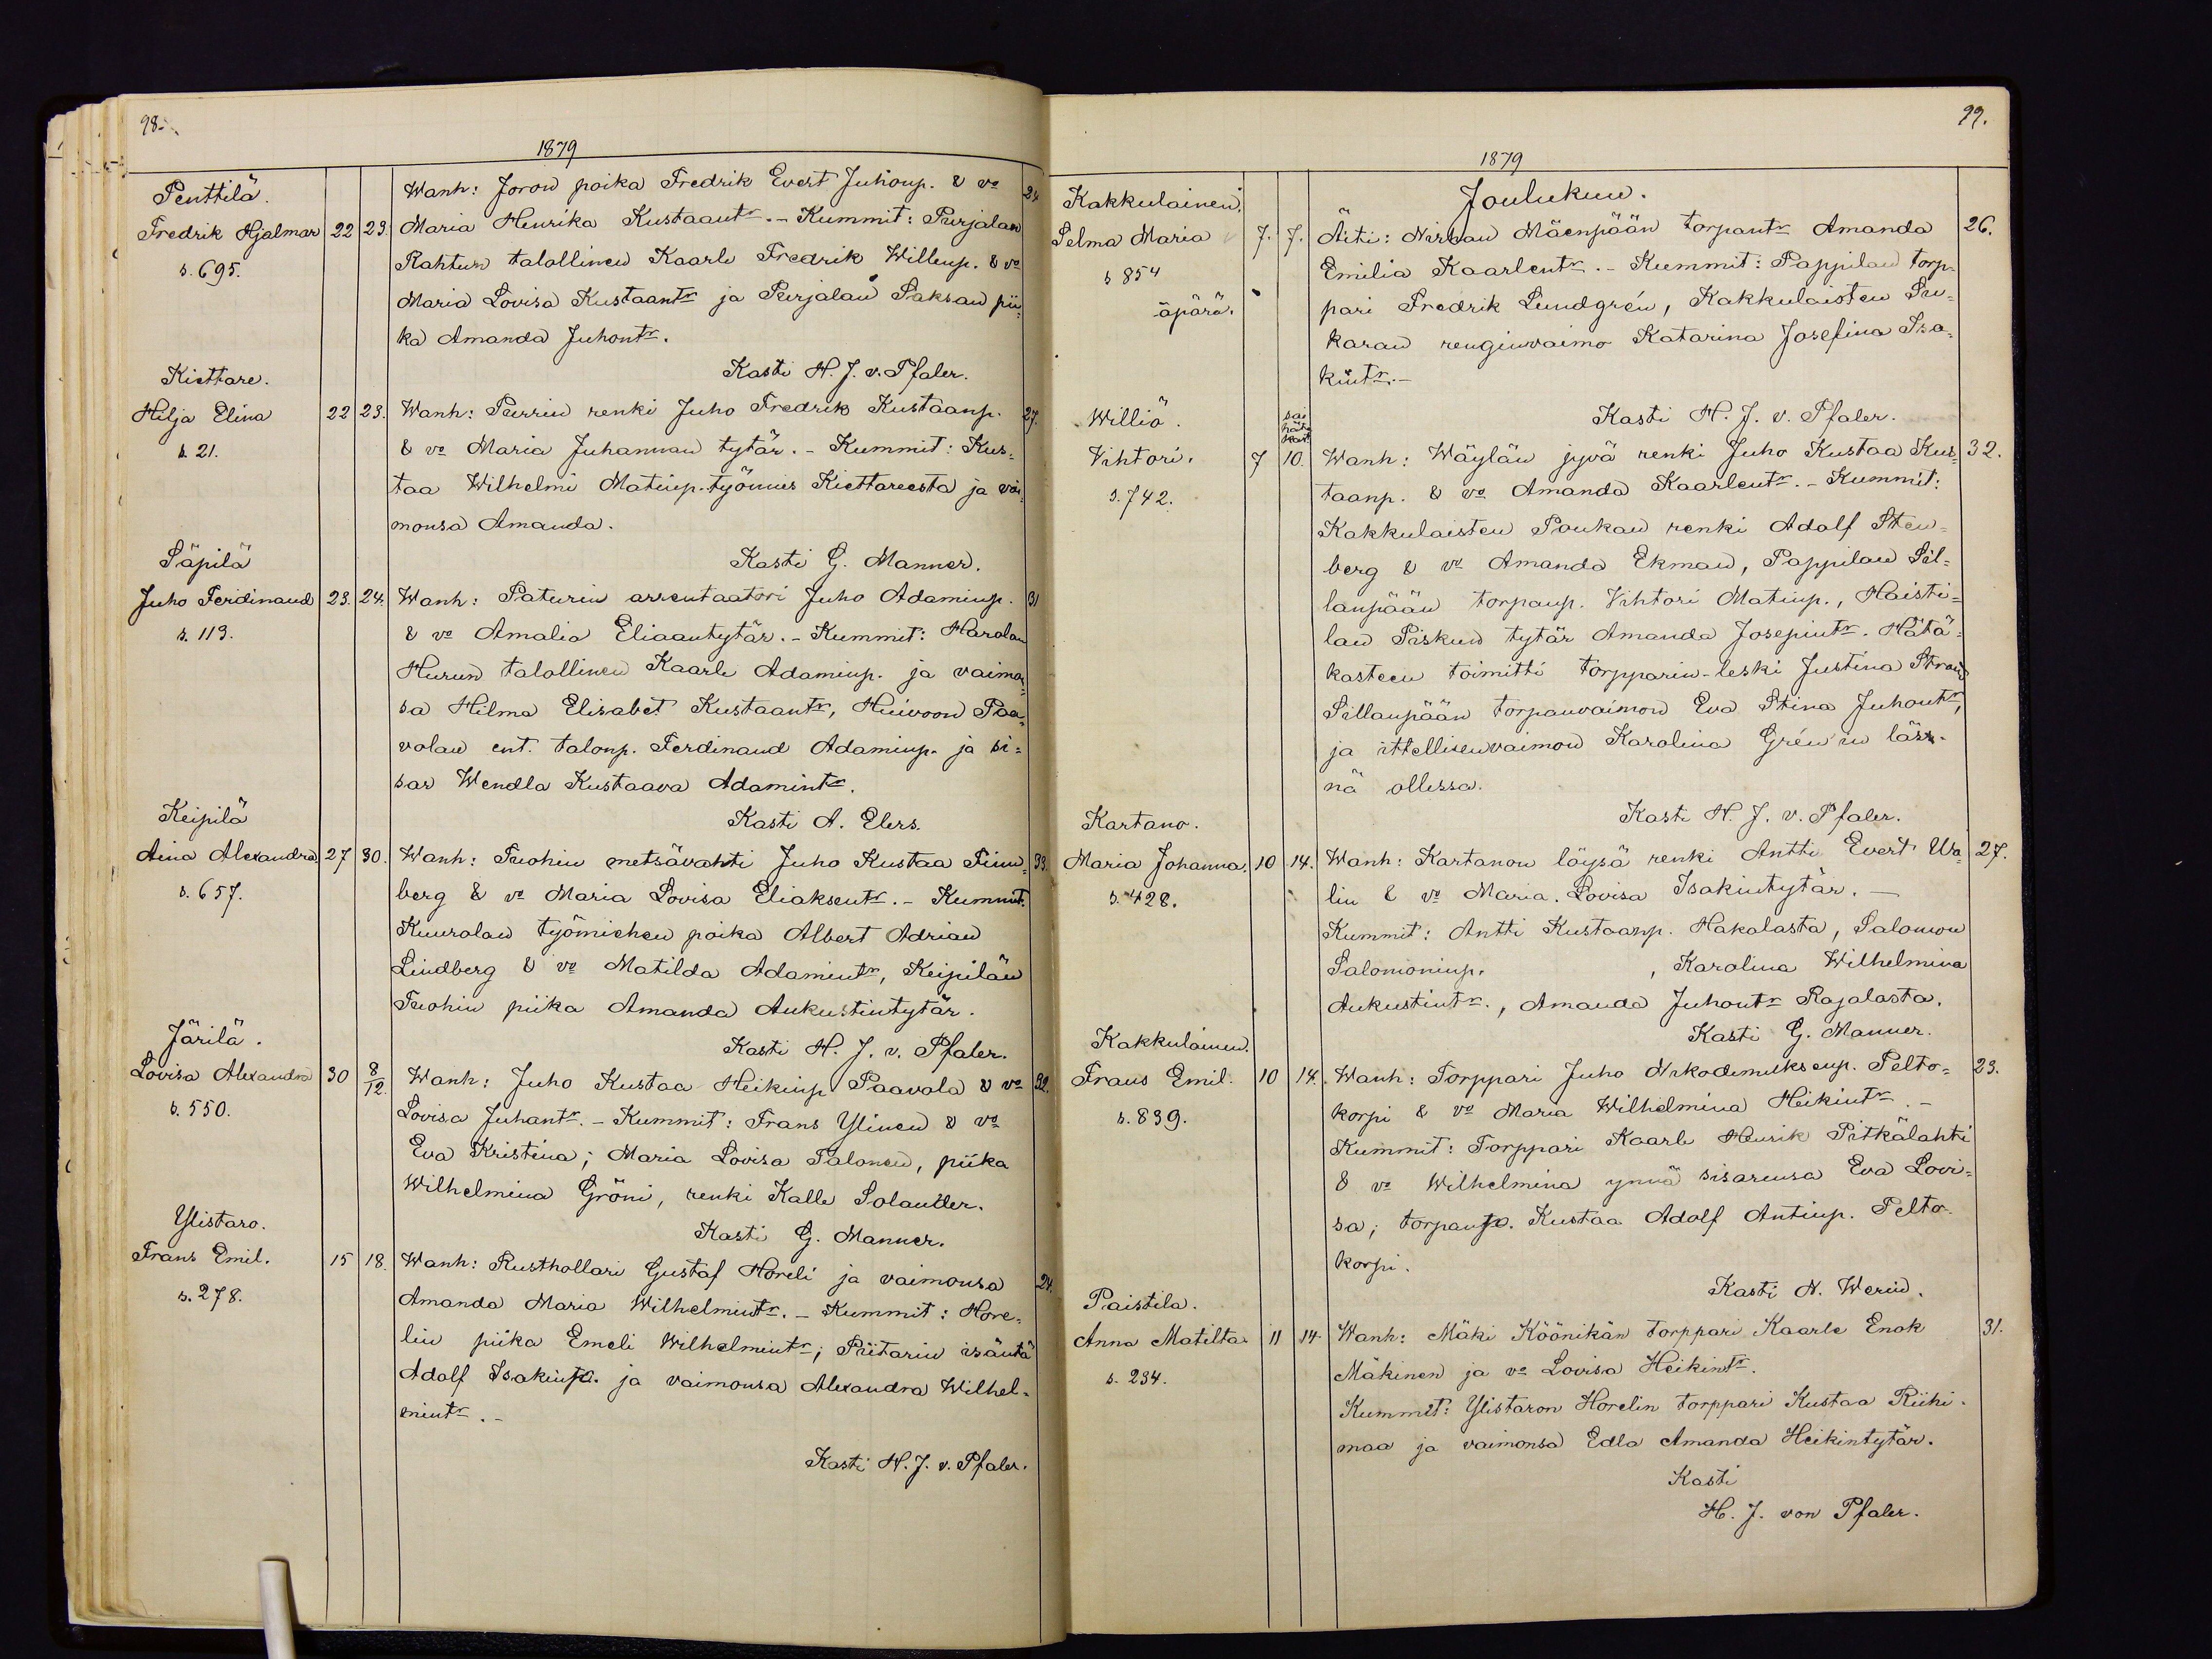 98.
1879
Penttilä.
Fredrik Hjalmar 22 23.
s. 695.
Wanh: Joron poika Fredrik Evert Juhonp. & vo 24
Maria Henrika Kustaantr. - Kummit: Purjalan
Rahtun talollinen Kaarle Fredrik Willenp. & vo
Maria Lovisa Kustaantr ja Purjalan Saksan pii-
ka Amanda Juhontr.
Kasti H. J. v. Pfaler.
Kiettare.
Hilja Elina 22 23.
s. 21.
Wanh: Purrin renki Juho Fredrik Kustaanp. 27.
& vo Maria Juhannan tytär. - Kummit: Kus=
taa Wilhelmi Matinp. työmies Kiettareesta ja vai-
monsa Amanda.
Kasti G. Manner.
Säpilä
Juho Ferdinand 23. 24.
s. 113.
Wanh: Paturin arrentaatori Juho Adaminp. 31
& vo Amalia Eliaantytär. - Kummit: Harolan
Hurun talollinen Kaarle Adaminp. ja vaimon=
sa Hilma Elisabet Kustaantr, Huivoon Paa=
volan ent. talonp. Ferdinand Adaminp. ja si=
sar Wendla Kustaava Adamintr.
Kasti A. Elers.
Keipilä
Aina Alexandra 27 30.
s. 657.
Wanh: Tuohin metsävahti Juho Kustaa Finn= 33.
berg & vo Maria Lovisa Eliaksentr. - Kummit.
Kuurolan työmiehen poika Albert Adrian
Lindberg & vo Matilda Adamintr, Keipilän
Tuohin piika Amanda Aukustintytär.
Kasti H. J. v. Pfaler.
Järilä.
Lovisa Alexandra 30 8/12.
s. 550.
Wanh: Juho Kustaa Heikinp Paavola & vo 32.
Lovisa Juhantr. - Kummit: Frans Ylinen & vo
Eva Kristina; Maria Lovisa Salonen, piika
Wilhelmina Gröni, renki Kalle Solander.
Kasti G. Manner.
Ylistaro.
Frans Emil. 15 18.
s. 278.
Wanh: Rusthollari Gustaf Horeli ja vaimonsa 24.
Amanda Maria Wilhelmintr. - Kummit: Hore=
lin piika Emeli Wilhelmintr; Piitarin isäntä
Adolf Isakinp. ja vaimonsa Alexandra Wilhel=
mintr. -
Kasti H. J. v. Pfaler.
99.
1879
Joulukuu.
Kakkulainen.
Selma Maria 7. 7.
s 854
äpärä.
Äiti: Mäenpään torpantr Amanda 26.
Emilia Kaarlentr. - Kummit: Pappilan torp-
pari Fredrik Lundgrén, Kakkulaisten Su=
karan renginvaimo Katarina Josefina Isa=
kintr. -
Kasti H. J. v. Pfaler.
Williö.
Vihtori. 7 10.
s. 742.
sai
hätä
kast
Wanh: Wäylän jyvä renki Juho Kustaa Kus= 32.
taanp. & vo Amanda Kaarlentr. - Kummit:
Kakkulaisten Poukan renki Adolf Sten=
berg & vo Amanda Ekman, Pappilan Sil=
lanpään torpanp. Vihtori Matinp., Haisti=
lan Piskun tytär Amanda Josepintr. Hätä=
kasteen toimitti torpparin-leski Justina
Sillanpään torpanvaimon Eva Stina Juhontr,
ja ittellisenvaimon Karolina Grén'in läs-
nä ollessa.
Kasti H. J. v. Pfaler.
Kartano.
Maria Johanna. 10 14.
s. 428.
Wanh: Kartanon löysä renki Antti Evert Wa- 27.
lin & vo Maria. Lovisa Isakintytär. -
Kummit: Antti Kustaanp. Hakalasta, Salomon
Salomoninp. , Karolina Wilhelmina
Aukustintr., Amanda Juhontr Rajalasta.
Kasti G. Manner.
Kakkulainen.
Frans Emil. 10 14.
s. 839.
Wanh: Torppari Juho Nikodemuksenp. Pelto= 23.
korpi & vo Maria Wilhelmina Heikintr. -
Kummit: Torppari Kaarle Henrik Pitkälahti
& vo Wilhelmina ynnä sisarensa Eva Lovi=
sa; torpanp. Kustaa Adolf Antinp. Pelto-
korpi.
Kasti N. Werin.
Paistila.
Anna Matilta 11 14.
s. 234.
Wanh: Mäki Köönikän torppari Kaarle Enok 31.
Mäkinen ja vo Lovisa Heikintr.
Kummit: Ylistaron Horelin torppari Kustaa Riihi-
maa ja vaimonsa Edla Amanda Heikintytär.
Kasti
H. J. von Pfaler.